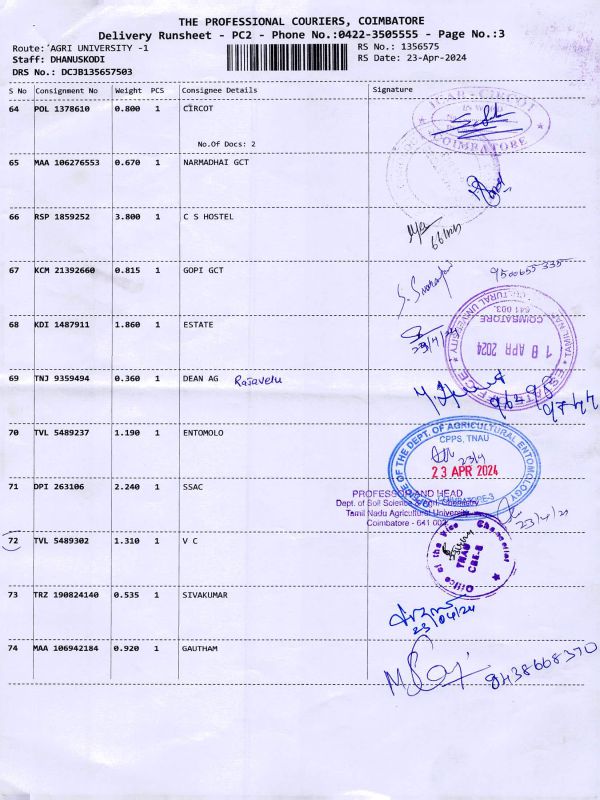 THE PROFESSIONAL COURIERS, COIMBATORE
Delivery Runsheet - PC2 - Phone No.:0422-3505555 - Page No.:3
Route: AGRI UNIVERSITY -1
RS No.: 1356575
Staff: DHANUSKODI
RS Date: 23-Apr-2024
DRS No.: DCJB135657503
S No Consignment No Weight PCS Consignee Details Signature
64 POL 1378610 0.800 1 CIRCOT
ICAR-CIRCOT
COIMBATORE
No.Of Docs: 2
65 MAA 106276553 0.670 1 NARMADHAI GCT
66 RSP 1859252 3.800 1 C S HOSTEL
67 KCM 21392660 0.815 1 GOPI GCT
9500655335
68 KDI 1487911 1.860 1 ESTATE
23/4/24
TAMIL NADU AGRICULTURAL UNIVERSITY
COIMBATORE
641 003.
18 APR 2024
ESTATE OFFICE
69 TNJ 9359494 0.360 1 DEAN AG Rasavelu
70 TVL 5489237 1.190 1 ENTOMOLO
OFFICE OF THE DEPT. OF AGRICULTURAL ENTOMOLOGY
CPPS, TNAU
23/4
23 APR 2024
COIMBATORE-3
71 DPI 263106 2.240 1 SSAC
PROFESSOR AND HEAD
Dept. of Soil Science & Agrl. Chemistry
Tamil Nadu Agricultural University
Coimbatore - 641 003
23/4/24
72 TVL 5489302 1.310 1 V C
Office of the Vice Chancellor
TNAU
CBE-3
73 TRZ 190824140 0.535 1 SIVAKUMAR
23/04/24
74 MAA 106942184 0.920 1 GAUTHAM
9438668370